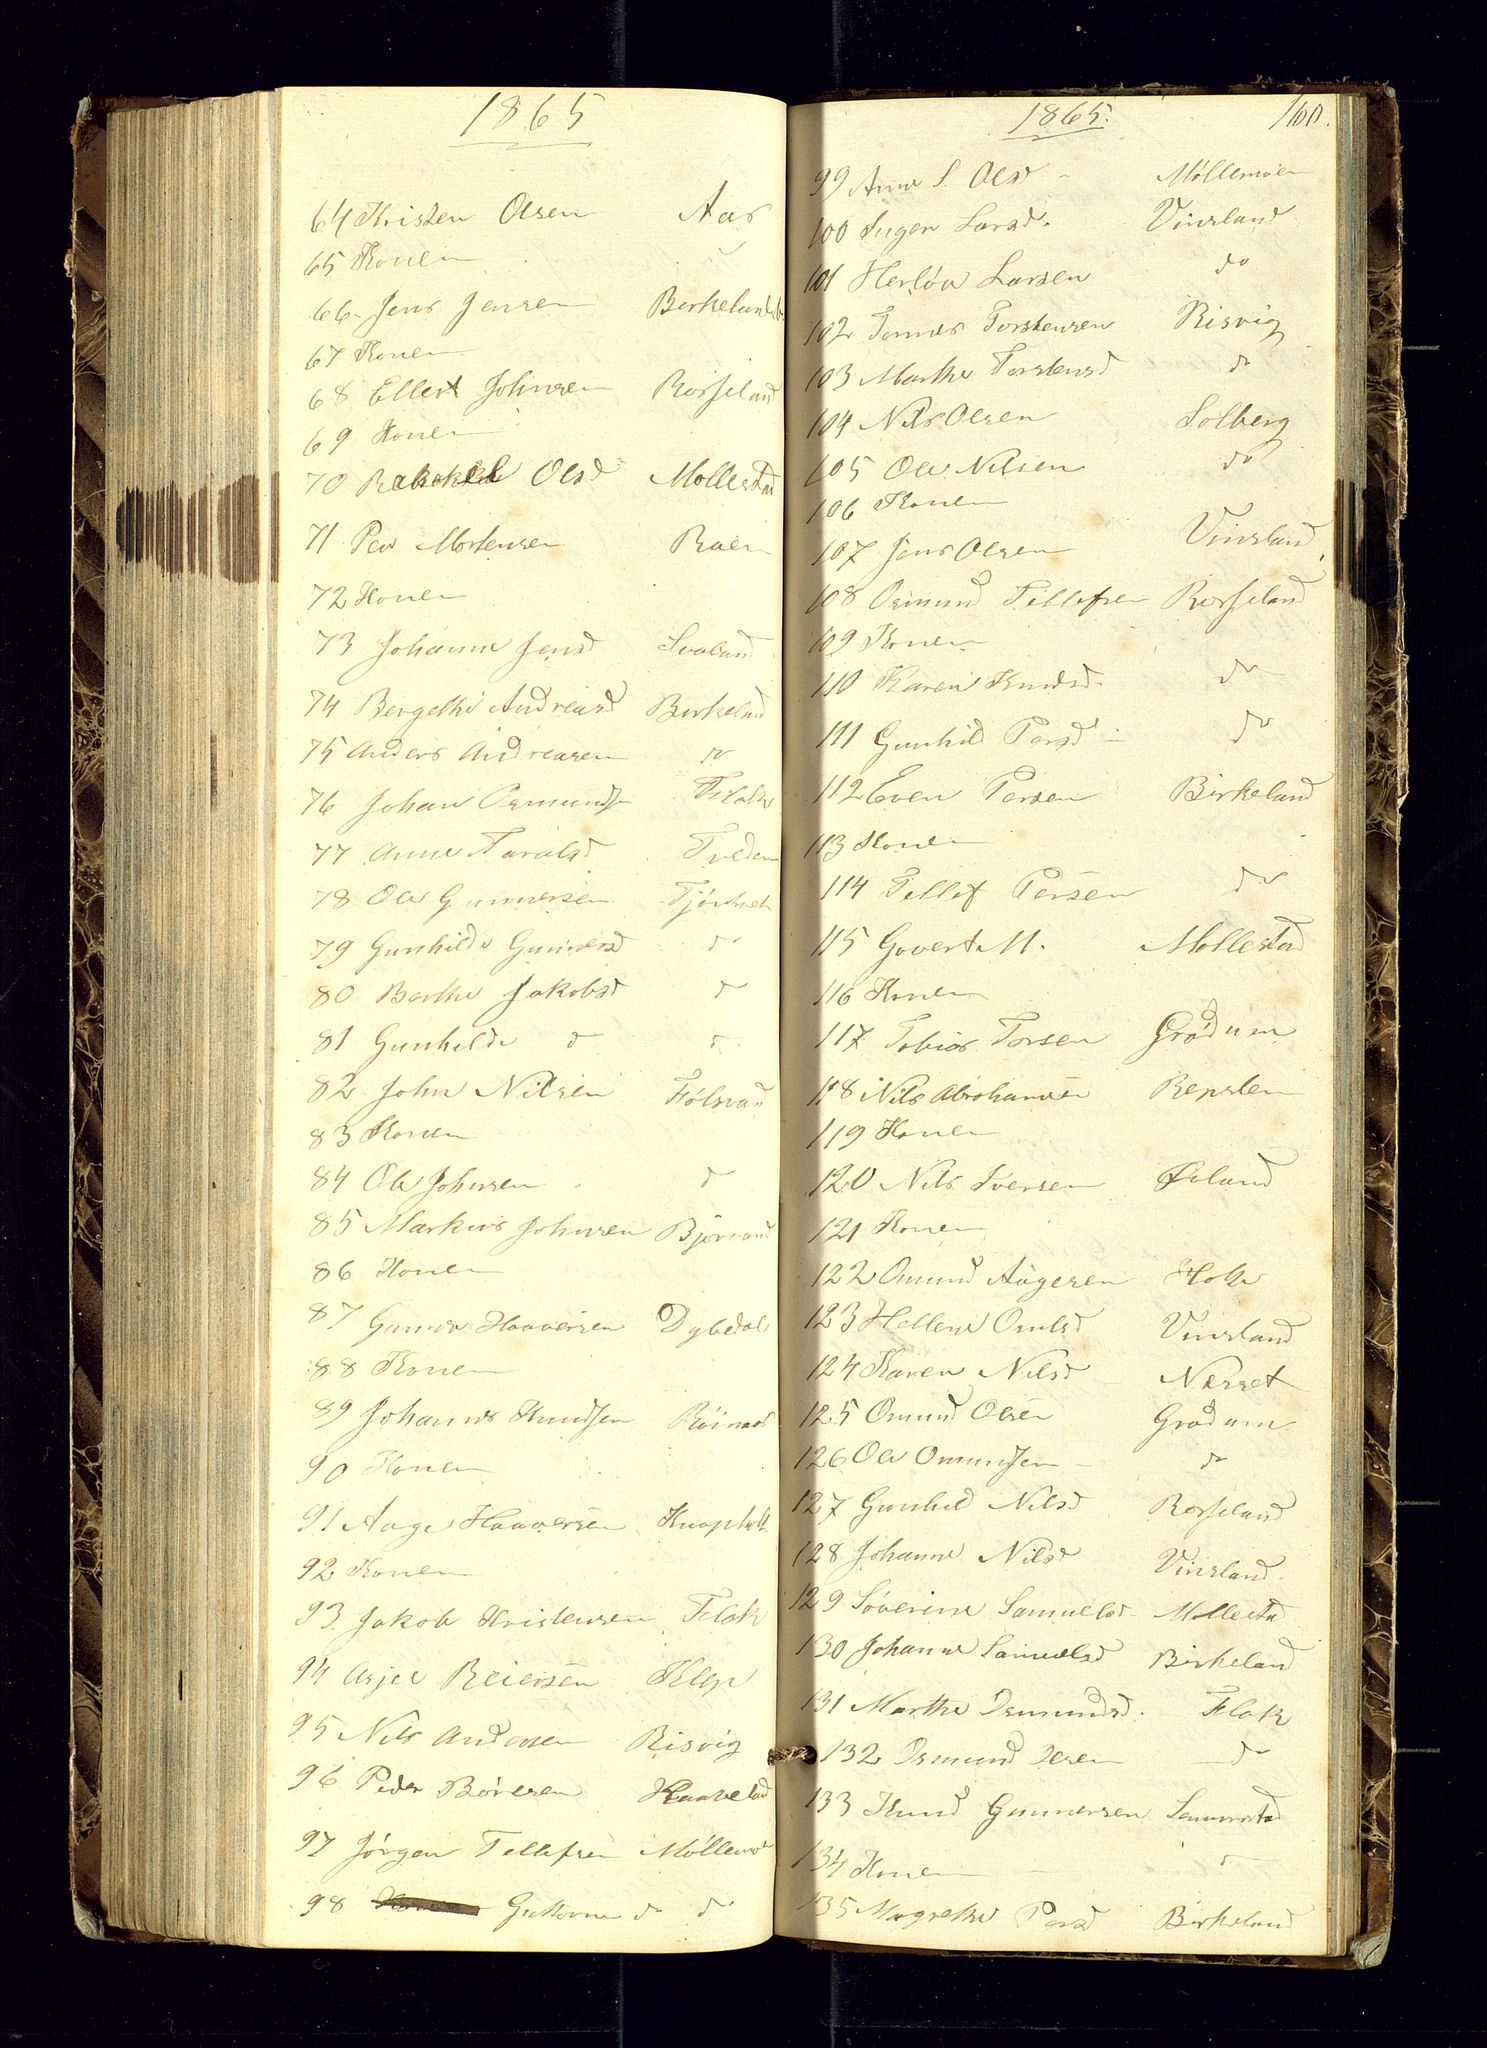 1865
64 Kristen Olsen Aas
65 Konen
66 Jens Jensen Berkeland
67 Konen
68 Ellert Johnsen Rosseland
69 Konen
70 Olsd Mollestad
71 Per Mortensen Raen
72 Konen
73 Johanne Jensd Svaland
74 Bergethe Andreasd Berkeland
75 Anders Andreasen do
76 Johan Osmunds Flak
77 Anne Taralsd Tveden
78 Ole Gunnersen
79 Gunhilde Gunnersd do
80 Berthe Jakobsd do
81 Gunhilde do do
82 John Nilsen Følsvan
83 Konen
84 Ole Johnsen do
85 Markus Johnsen Bjørvand
86 Konen
87 Gunner Haaversen Dybedal
88 Konen
89 Johannes Knudsen
90 Konen
91 Aage Haaversen Knapholt
92 Konen
93 Jakob Kristensen Flak
94 Asjer Reiersen Klep
95 Nils Andersen Risvig
96 Peder Børesen Haaveland
97 Jørgen Tellefsen Møllemo
98 Guttorm do do
1865. 160.
99 Anne S. Olsd Møllemoen
100 Inger Larsd. Vinsland
101 Herløv Larsen do
102 Tomas Torstensen Risvig
103 Marthe Torstensd do
104 Nils Olsen Solberg
105 Ole Nilsen do
106 Konen
107 Jens Olsen Vinsland
108 Osmund Tellefsen Rosseland
109 Konen
110 Karen Knudsd. do
111 Gunhild Persd do
112 Even Persen Birkeland
113 Konen
114 Tellef Persen do
115 Govert M. Mollestad
116 Konen
117 Tobias Torsen Grødum
118 Nils Abrahamsen Repsten
119 Konen
120 Nils Iversen Øvland
121 Konen
122 Omund Aagesen Holte
123 Hellene Omlsd Vinsland
124 Karen Nilsd Næsset
125 Omund Olsen Grødum
126 Ole Omundsen do
127 Gunhild Nilsd Rosseland
128 Johanne Nilsd Vinsland.
129 Søverine Samuelsd Mollestd
130 Johanne Samuelsd Birkeland
131 Marthe Osmundsd. Flak
132 Osmund Olsen do
133 Knud Gunnersen
134 Konen do
135 Magrethe Persd Birkeland